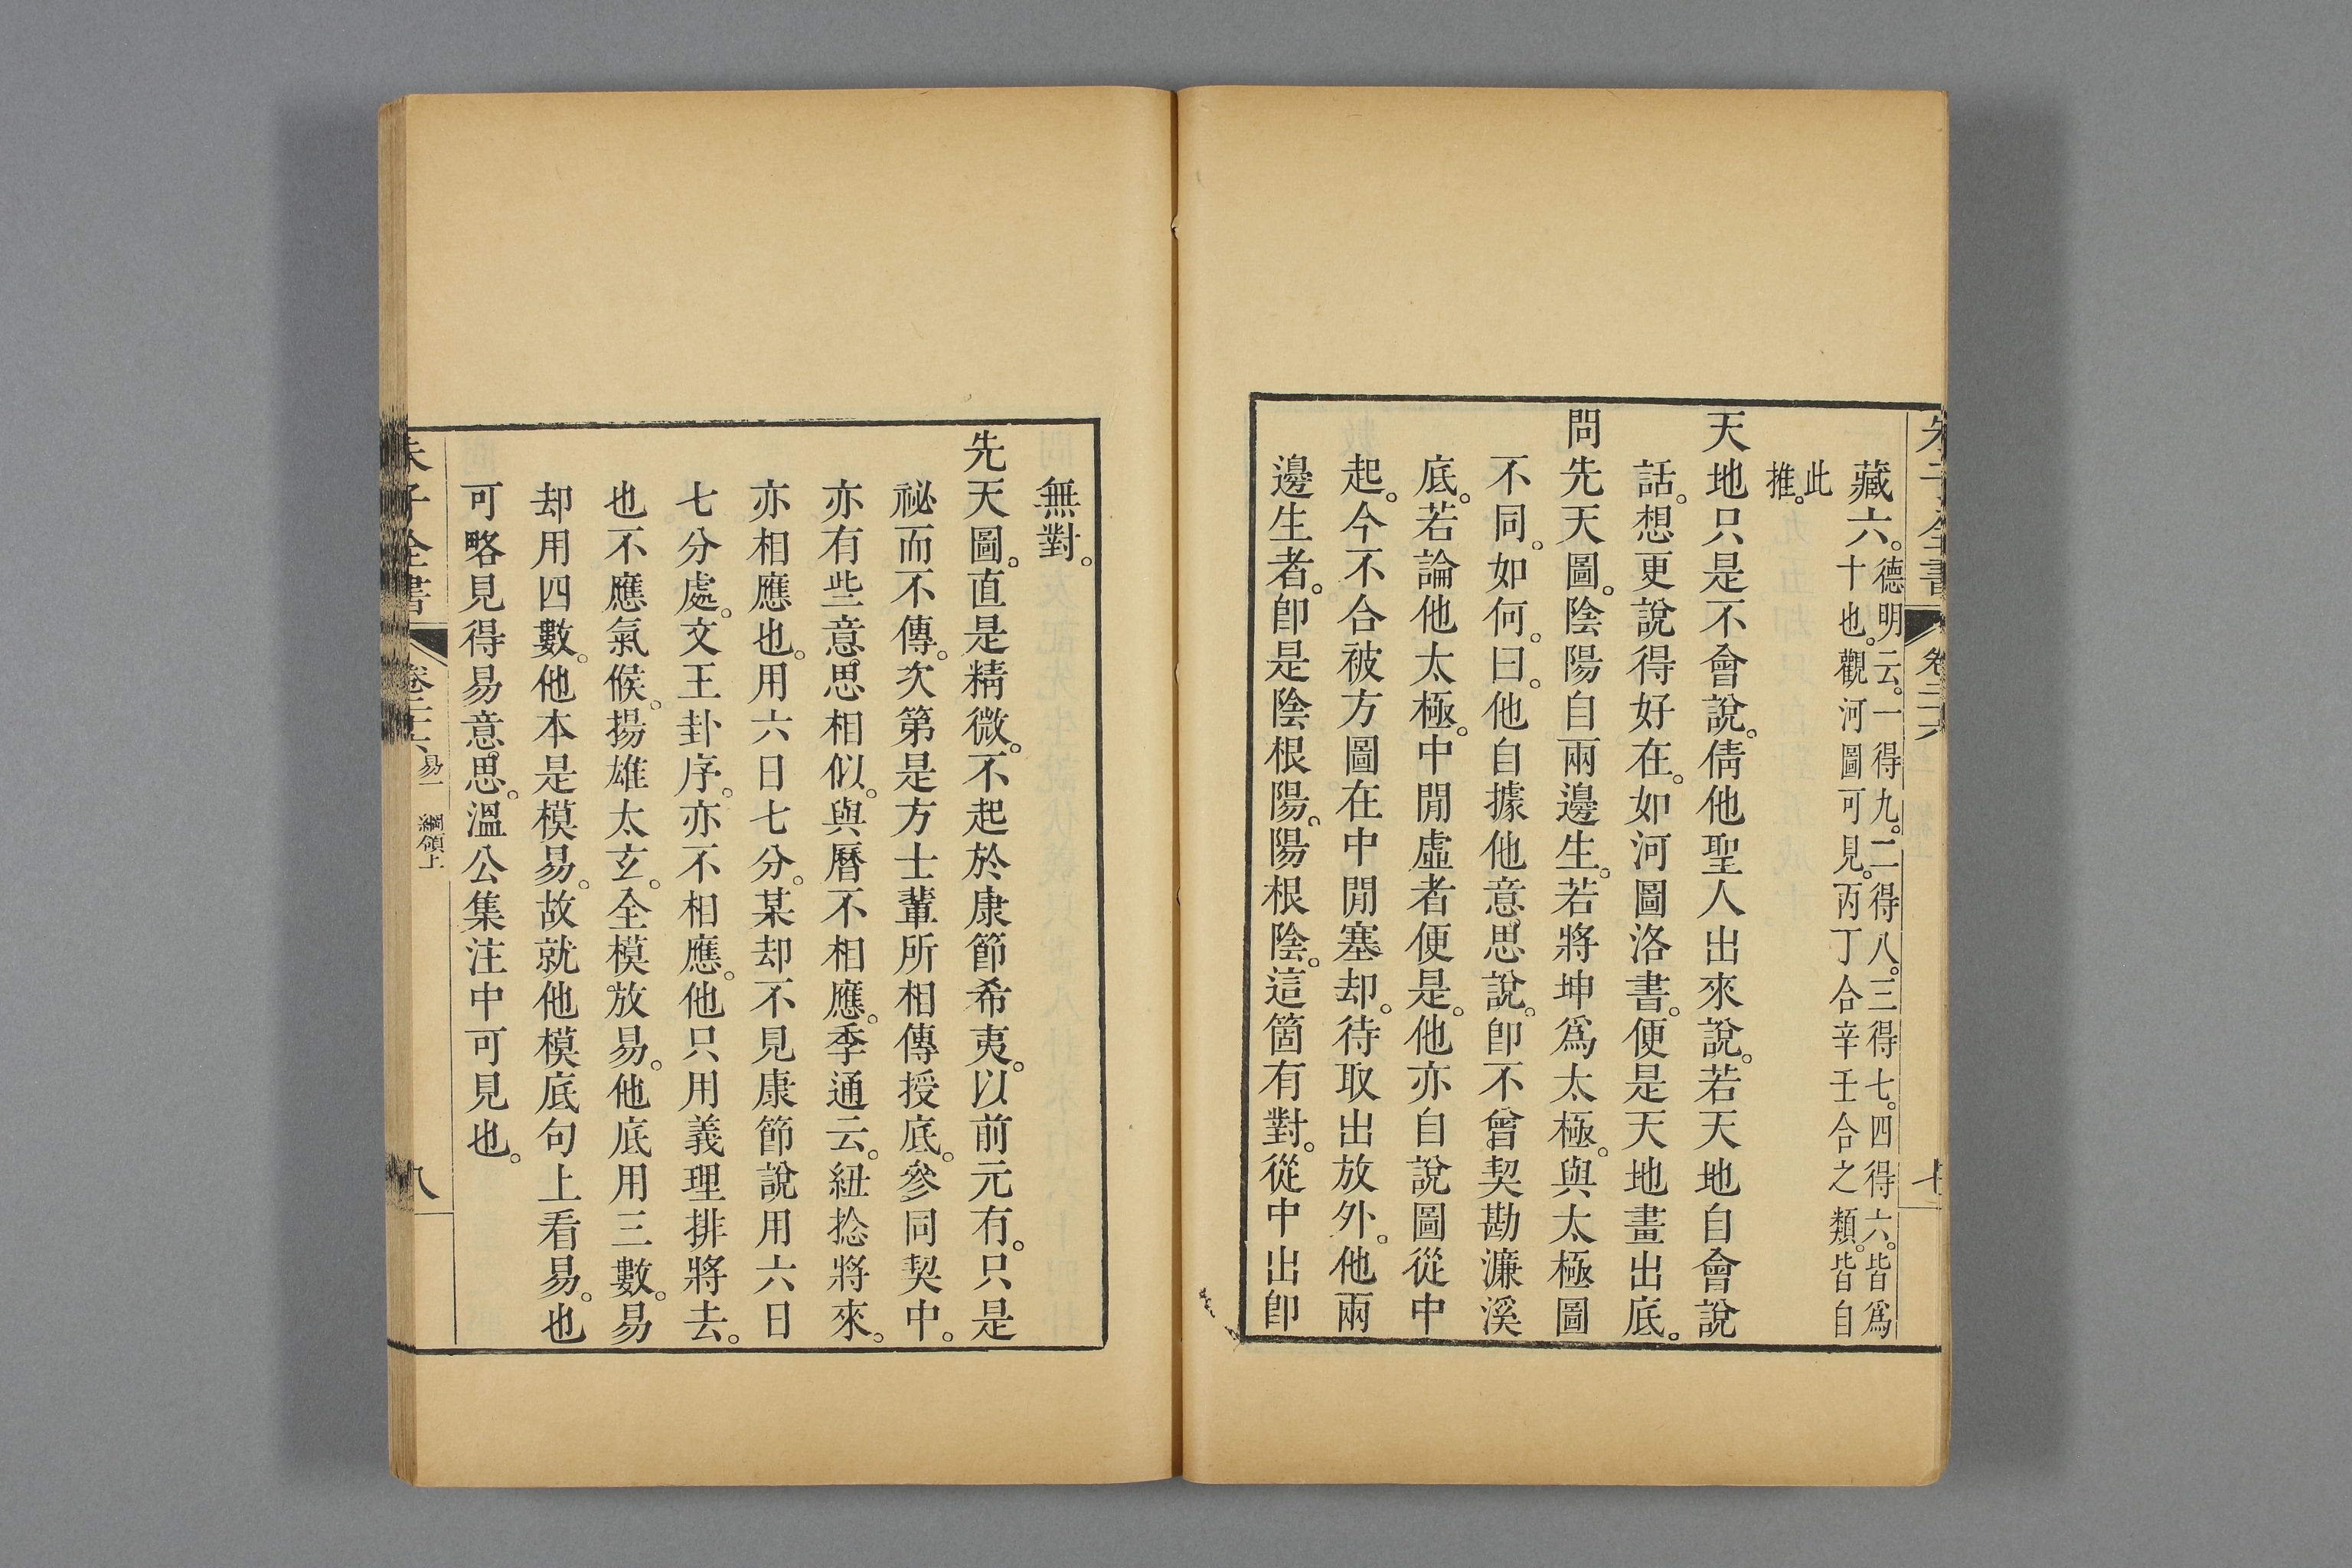 朱子全書 卷二六 七
藏六。德明云。一得九。二得八。三得七。四得六。皆爲
十也。觀河圖可見。丙丁合辛壬合之類。皆自
此
推。
天地只是不會說。倩他聖人出來說。若天地自會說
話。想更說得好在。如河圖洛書。便是天地畫出底。
問先天圖。陰陽自兩邊生。若將坤爲太極。與太極圖
不同。如何。曰。他自據他意思說。卽不曾契勘濂溪
底。若論他太極。中閒虛者便是。他亦自說圖從中
起。今不合被方圖在中閒塞却。待取出放外。他兩
邊生者。卽是陰根陽。陽根陰。這箇有對。從中出卽
無對。
先天圖。直是精微。不起於康節希夷。以前元有。只是
祕而不傳。次第是方士輩所相傳授底。參同契中。
亦有些意思相似。與曆不相應。季通云。紐捻將來。
亦相應也。用六日七分。某却不見康節說用六日
七分處。文王卦序。亦不相應。他只用義理排將去。
也不應氣候。揚雄太玄。全模放易。他底用三數。易
却用四數。他本是模易。故就他模底句上看易。也
可略見得易意思。溫公集注中可見也。
朱子全書 卷二六 易一 綱領上 八